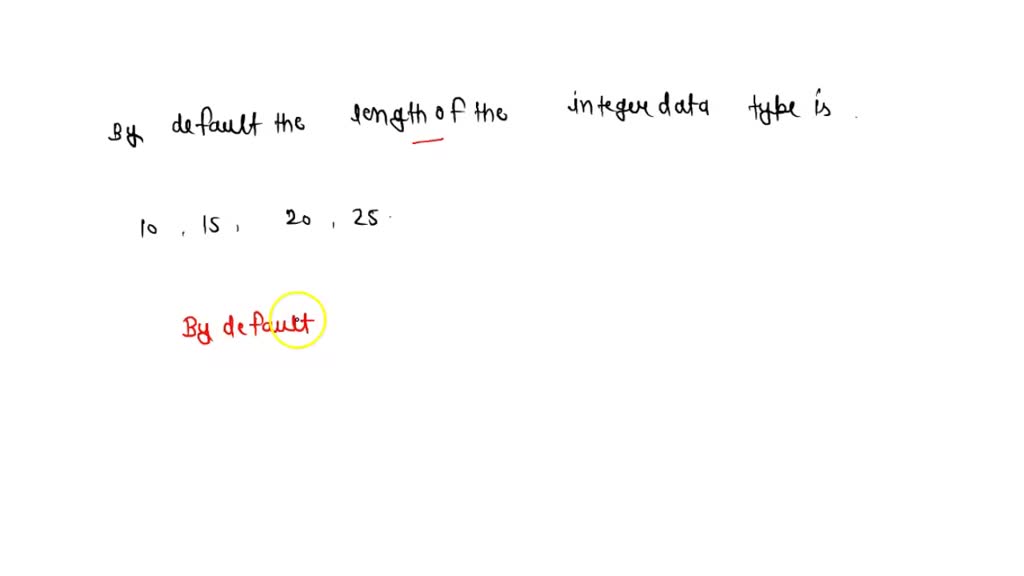 By default the length of the integer data type is .
10 , 15 , 20 , 25 .
By default